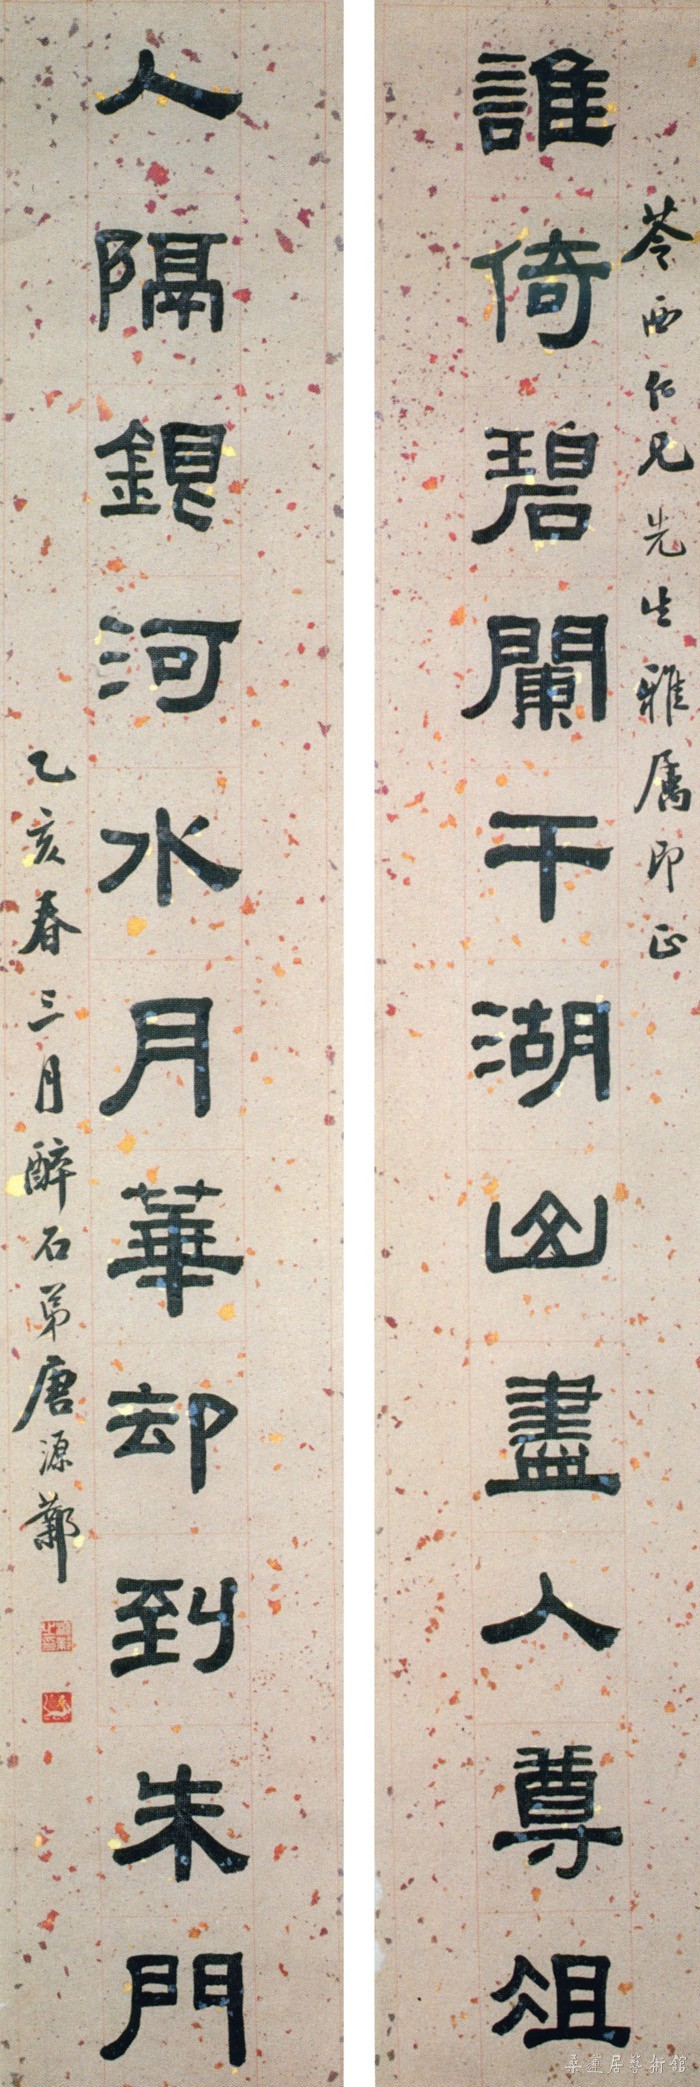 苓西仁兄先生雅属即正
誰倚碧闌干湖山盡入尊俎
人隔銀河水月華却到朱門
乙亥春三月醉石弟唐源鄴
桑蓮居藝術館